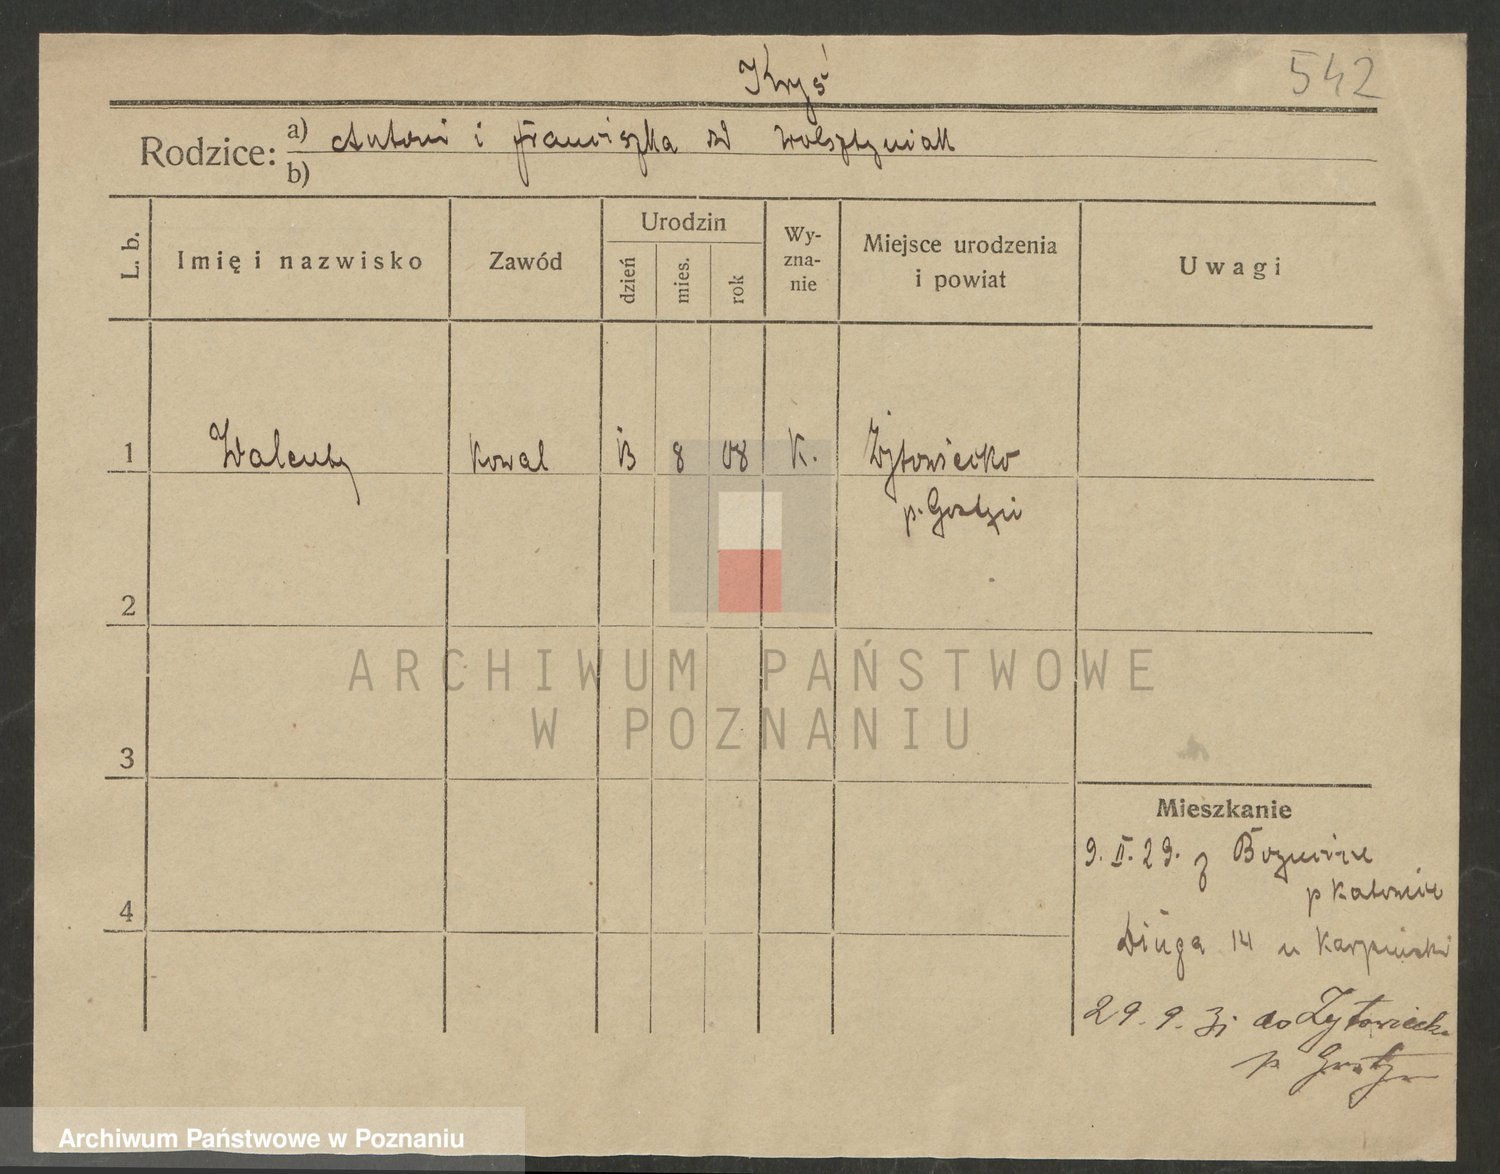 Kryś
542
Rodzice: a) Antoni i Franciszka zd Wolsztyniak
b)
L. b.
Imię i nazwisko
Zawód
Urodzin
dzień
mies.
rok
Wy-
zna-
nie
Miejsce urodzenia
i powiat
Uwagi
1 Walenty Kowal 8 08 K. Żytowiecko
p. Gostyń
2
3
4
Mieszkanie
9. II. 29. z
p Katowice
Długa 14 u Karpiński
29. 9. 31 do Żytowiecka
p Gostyń
ARCHIWUM PAŃSTWOWE
W POZNANIU
Archiwum Państwowe w Poznaniu